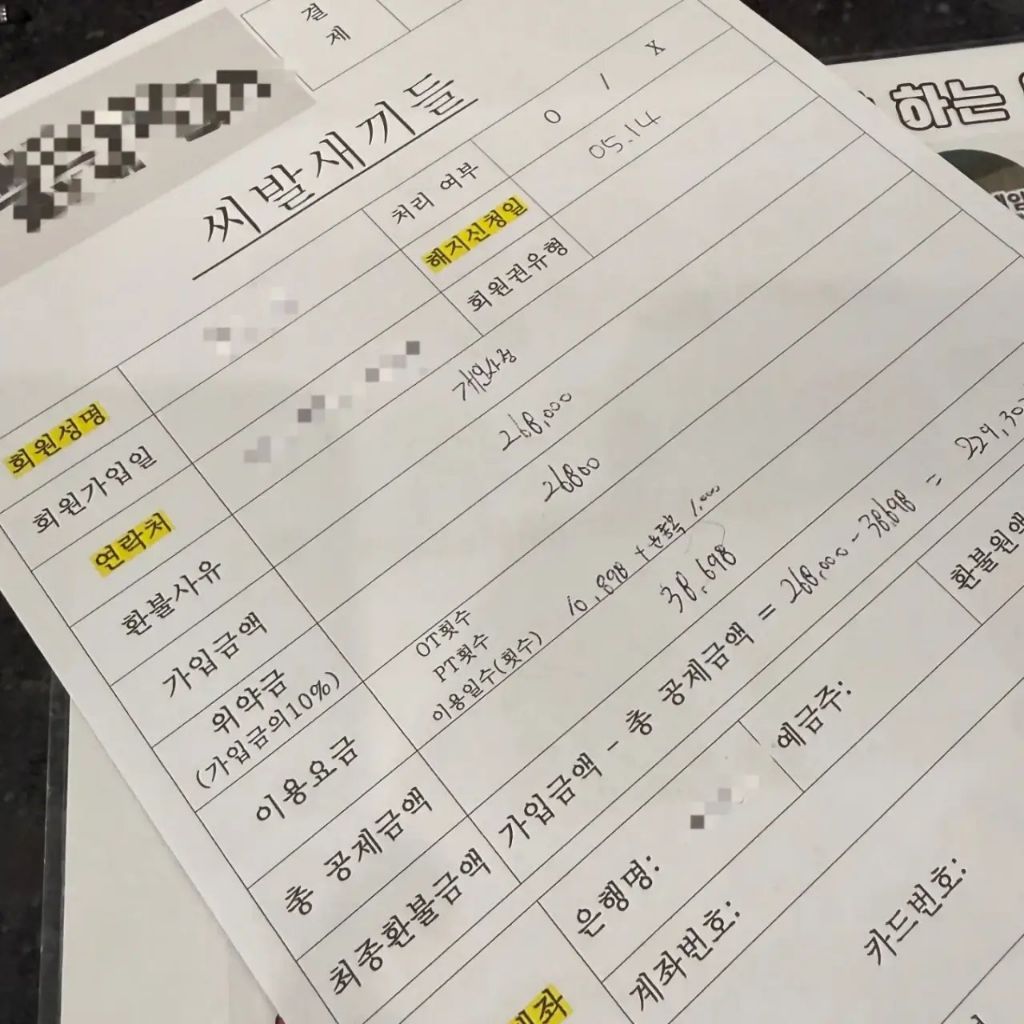 결
제
하는
씨발새끼들
처리 여부 O / X
해지신청일 05.14
회원권유형
회원성명
회원가입일
연락처
환불사유 개인사정
가입금액 268,000
위약금 26800
(가입금의10%)
이용요금
OT횟수
PT횟수
이용일수(횟수) 10,898 + 1,000
총 공제금액 38,698
최종환불금액 가입금액 - 총 공제금액 = 268,000 - 38,698 =
환불원액
은행명: 예금주:
계좌번호:
카드번호: